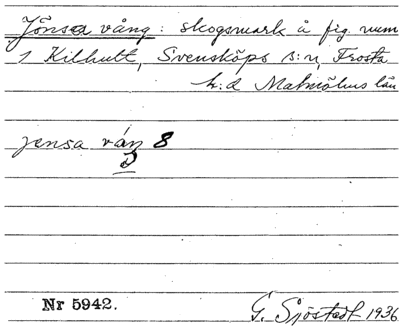 Jönsa vång: skogsmark å fig. num
1 Kilhult, Svensköps s:n, Frosta
h:d Malmöhus län
jensa ván 8
Nr 5942.
G. Sjöstedt 1936